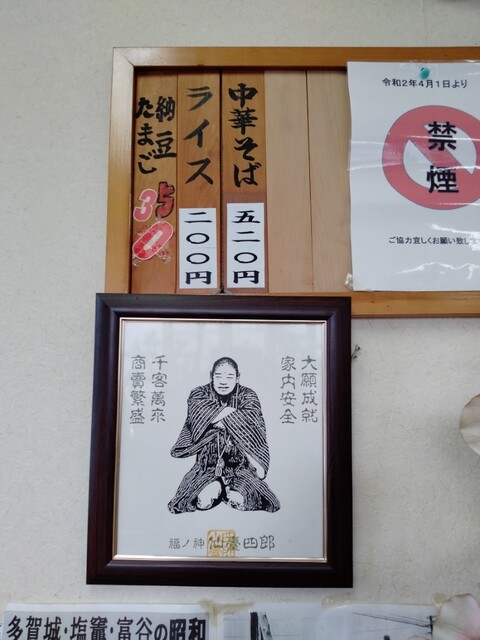 中華そば
五二〇円
ライス
二〇〇円
納豆
たまご
350
令和2年4月1日より
禁煙
ご協力宜しくお願い致し
大願成就
家内安全
千客萬来
商賣繁盛
福ノ神 仙臺四郎
多賀城・塩竈・富谷の昭和